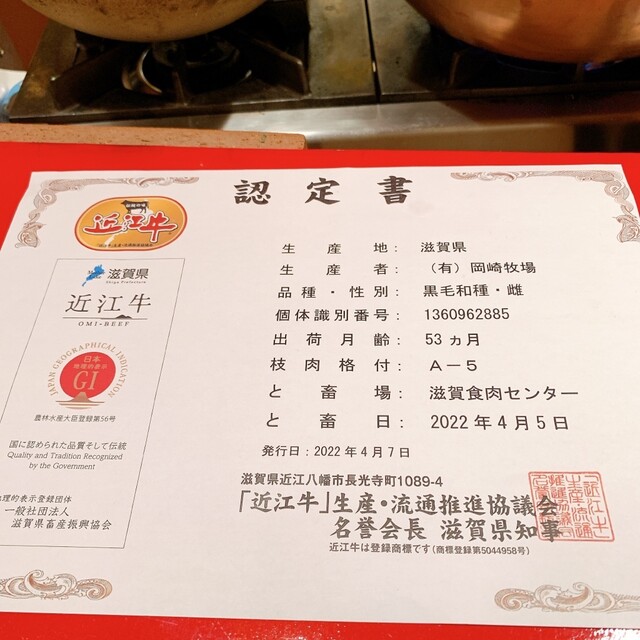 認定書
近江牛
滋賀県
Shiga Prefecture
近江牛
OMI-BEEF
JAPAN GEOGRAPHICAL INDICATION
日本
地理的表示
GI
農林水産大臣登録第56号
国に認められた品質そして伝統
Quality and Tradition Recognized
by the Government
地理的表示登録団体
一般社団法人
滋賀県畜産振興協会
生産地: 滋賀県
生産者: (有)岡崎牧場
品種・性別: 黒毛和種・雌
個体識別番号: 1360962885
出荷月齢: 53ヵ月
枝肉格付: A-5
と畜場: 滋賀食肉センター
と畜日: 2022年4月5日
発行日:2022年4月7日
滋賀県近江八幡市長光寺町1089-4
「近江牛」生産・流通推進協議会
名誉会長 滋賀県知事
近江牛は登録商標です(商標登録第5044958号)